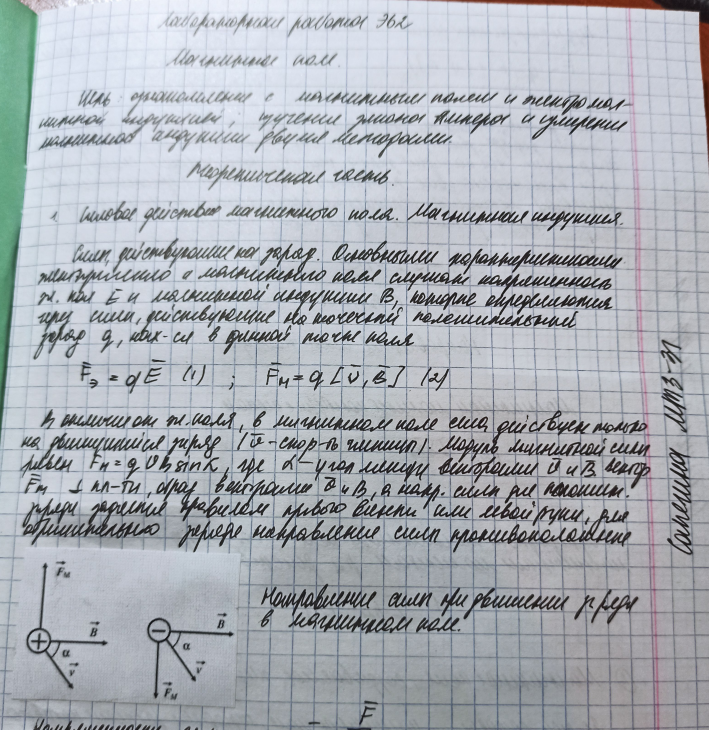 Лабораторная работа Э62
Магнитное поле.
Цель: ознакомление с магнитным полем и электромаг-
нитной индукцией; изучение закона Ампера и измерение
магнитной индукции двумя методами.
Теоретическая часть.
1. Силовое действие магнитного поля. Магнитная индукция.
Силы, действующие на заряд. Основными характеристиками
электрического и магнитного поля служат напряженность
эл. поля E̅ и магнитной индукции B̅, которые определяются
через силы, действующие на точечный положительный
заряд q, нах-ся в данной точке поля
F̅э = qE̅ (1) ; F̅м = q[v̅, B̅] (2)
В отличие от эл. поля, в магнитном поле сила действует только
на движущийся заряд (v̅ - скор-ть частицы). Модуль магнитной силы
равен Fм = qvBsinα, где α - угол между векторами v̅ и B̅ вектор
F̅м ⊥ пл-ти, образ векторами v̅ и B̅, а напр. силы для положит.
заряда задается правилом правого винта или левой руки, для
отрицательного заряда направление силы противоположное
F⃗м
+
B⃗
α
v⃗
−
B⃗
α
v⃗
F⃗м
Направление силы при движении заряда
в магнитном поле.
F̅
МТ3-31